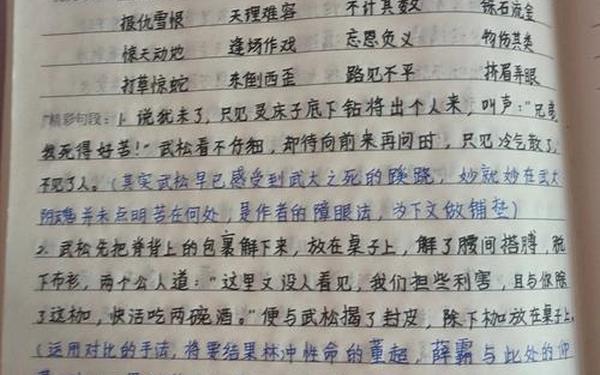 报仇雪恨 天理难容 不计其数 铄石流金
惊天动地 逢场作戏 忘恩负义 物伤其类
打草惊蛇 东倒西歪 路见不平 挤眉弄眼
精彩句段：1. 说犹未了，只见灵床子底下钻将出个人来，叫声："兄弟
我死得好苦！"武松看不仔细，却待向前来再问时，只见冷气散了，
不见了人。（其实武松早已感受到武大之死的蹊跷，妙就妙在武大
阴魂并未点明苦在何处，是作者的障眼法，为下文做铺垫）
2. 武松先把脊背上的包裹解下来，放在桌子上，解了腰间搭膊，脱
下布衫，两个公人道："这里又没人看见，我们担些利害，且与你除
了这枷，快活吃两碗酒。"便与武松揭了封皮，除下枷放在桌子上。
（运用对比的手法，将要结果林冲性命的董超，薛霸与此处的